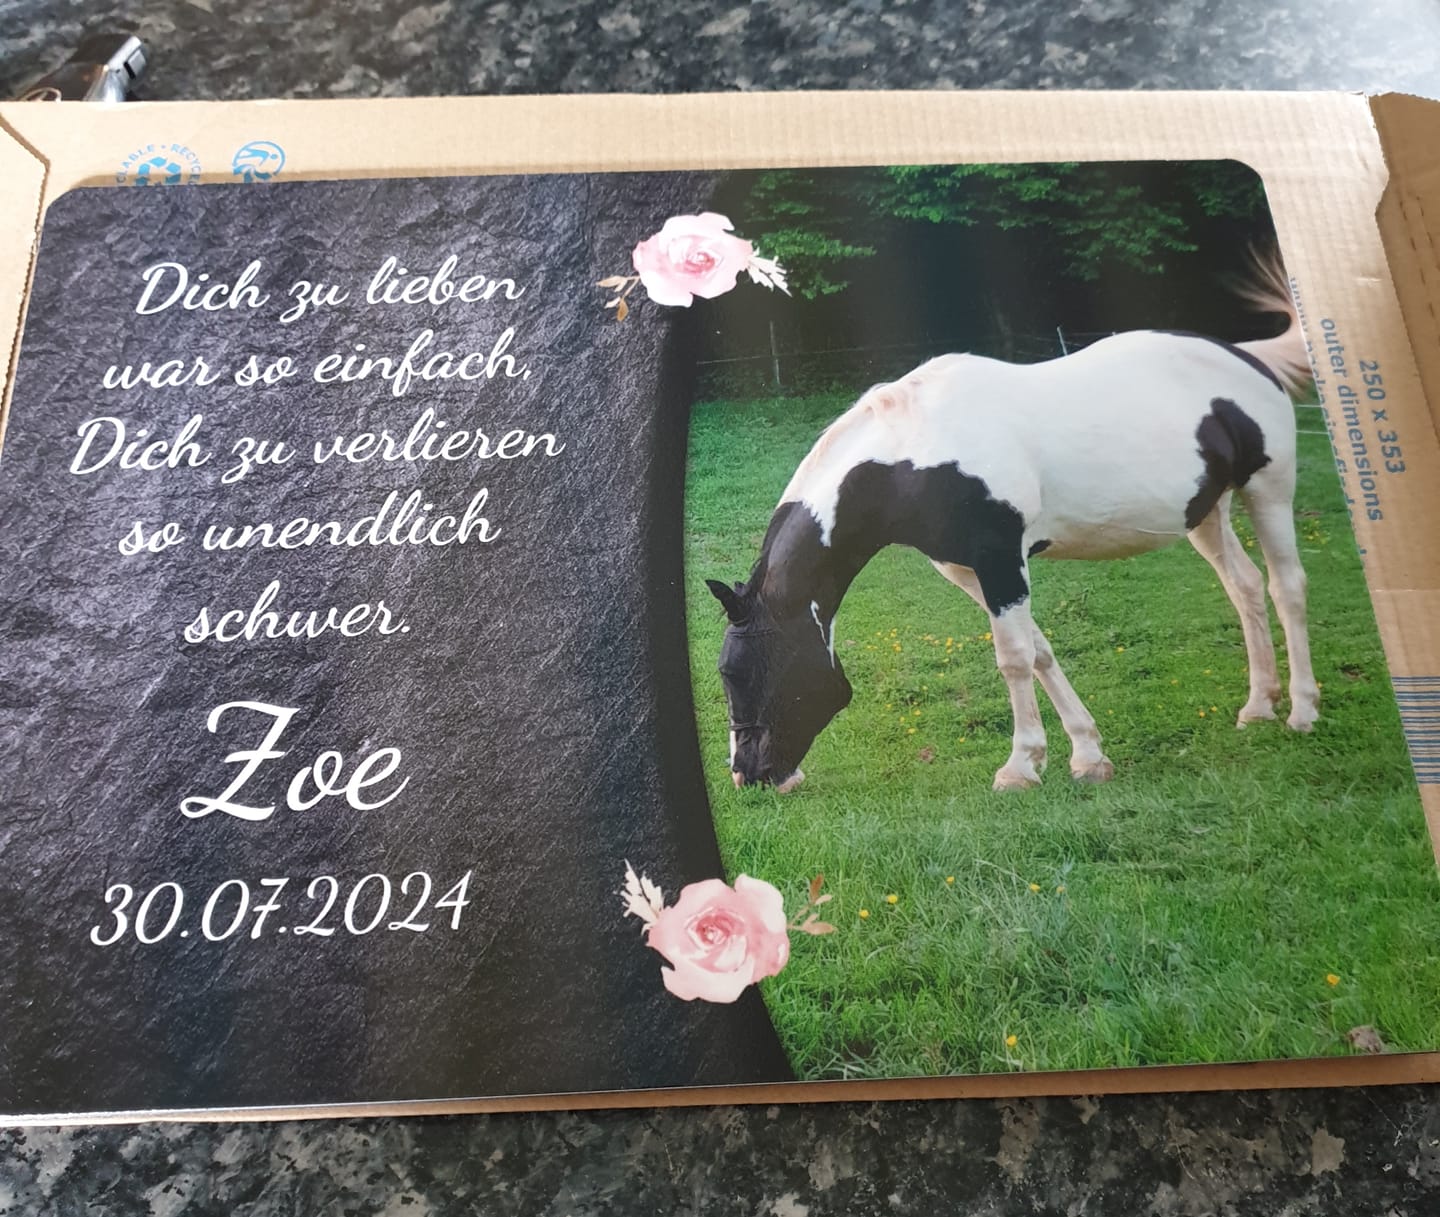 Dich zu lieben
war so einfach,
Dich zu verlieren
so unendlich
schwer.
Zoe
30.07.2024
250 x 353
outer dimensions